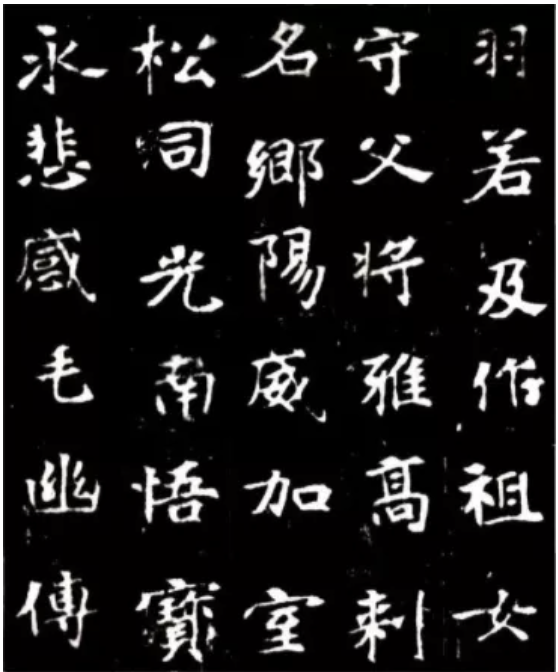 羽若及作祖女
守父將雅高刺
名鄉陽威加室
松同光南悟寶
永悲感毛幽傳